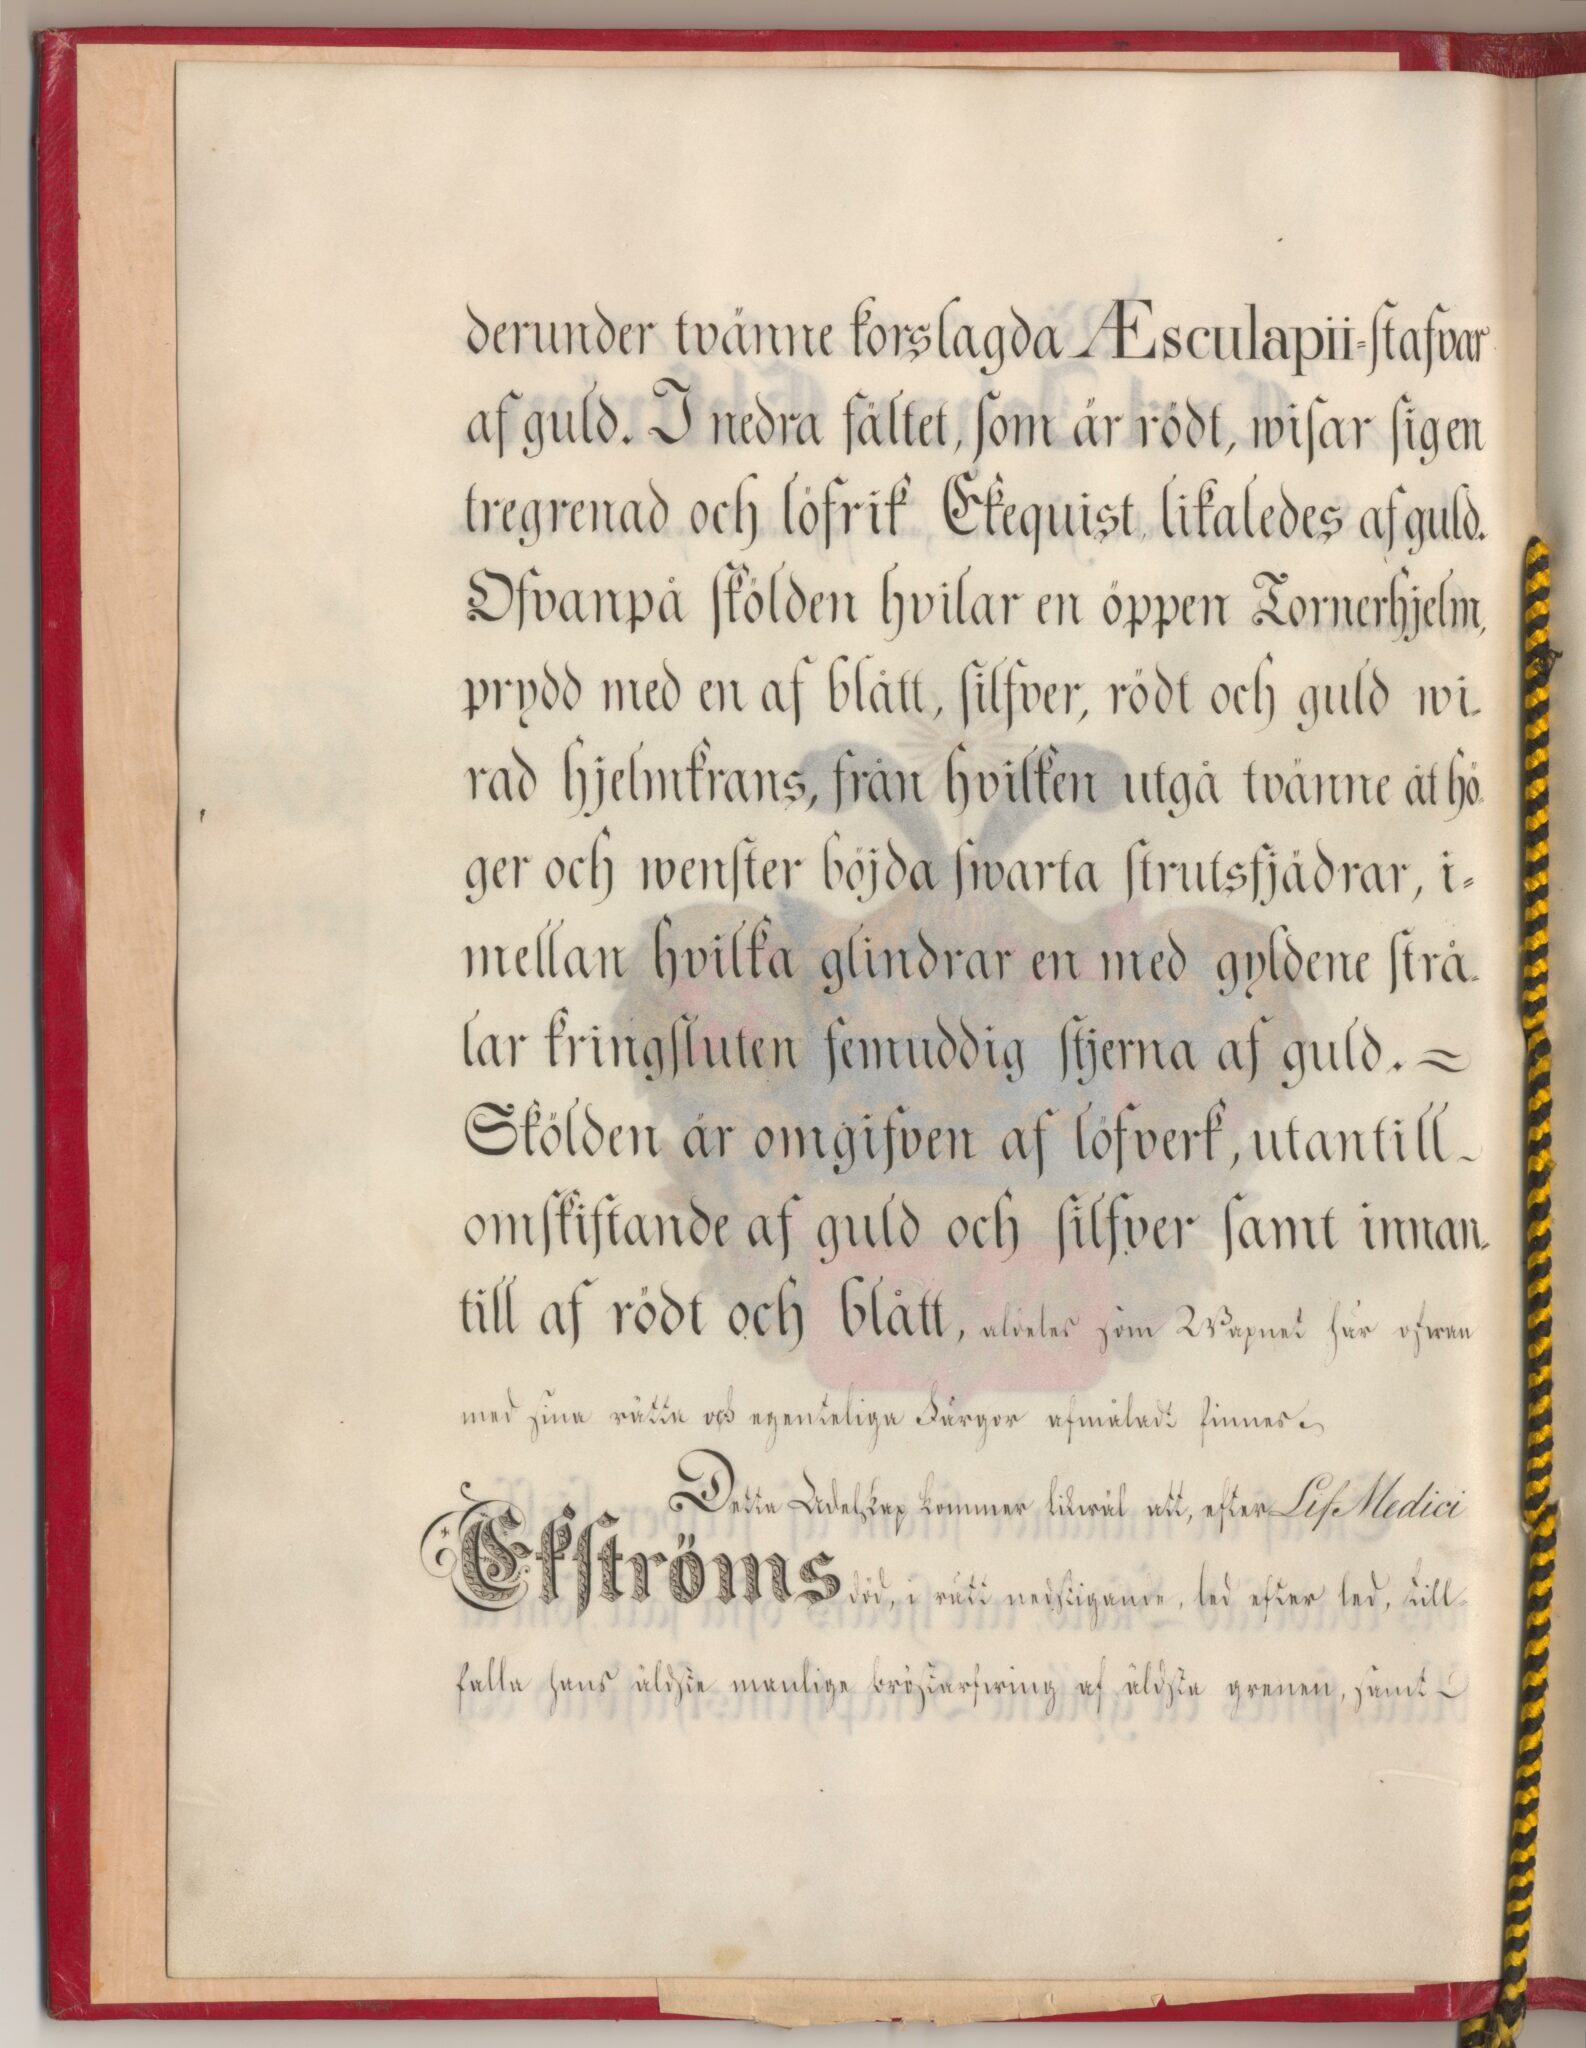 derunder tvänne korslagda Æsculapii-stafvar
af guld. I nedra fältet, som är rödt, wisar sig en
tregrenad och löfrik Ekequist, likaledes af guld.
Ofvanpå skölden hvilar en öppen Tornerhjelm,
prydd med en af blått, silfver, rödt och guld wi-
rad hjelmkrans, från hvilken utgå tvänne åt hö-
ger och wenster böjda swarta strutsfjädrar, i-
mellan hvilka glindrar en med gyldene strå-
lar kringsluten femuddig stjerna af guld. =
Skölden är omgifven af löfverk, utantill
omskiftande af guld och silfver samt innan-
till af rödt och blått, aldeles som Wapnet här ofwan
med sina rätta och egenteliga Färgor afmåladt finnes.
Detta Adelskap kommer likwäl att, efter Lif Medici
Ekströms död, i rätt nedstigande, led efter led, till-
falla hans äldste manlige bröstarfwing af äldsta grenen, samt